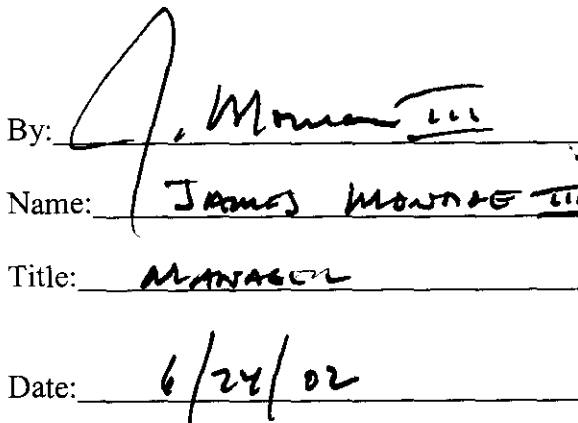 By: J. Monroe III
Name: JAMES MONROE III
Title: MANAGER
Date: 6/24/02